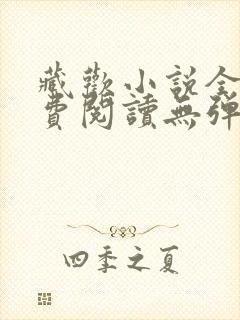 藏歡小说全
費閱讀無彈
四季之夏